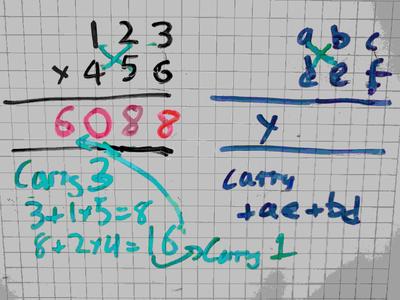 1 2 3
× 4 5 6
6 0 8 8
Carry 3
3+1×5=8
8+2×4=16 → Carry 1
a b c
d e f
y
carry
+ae+bd